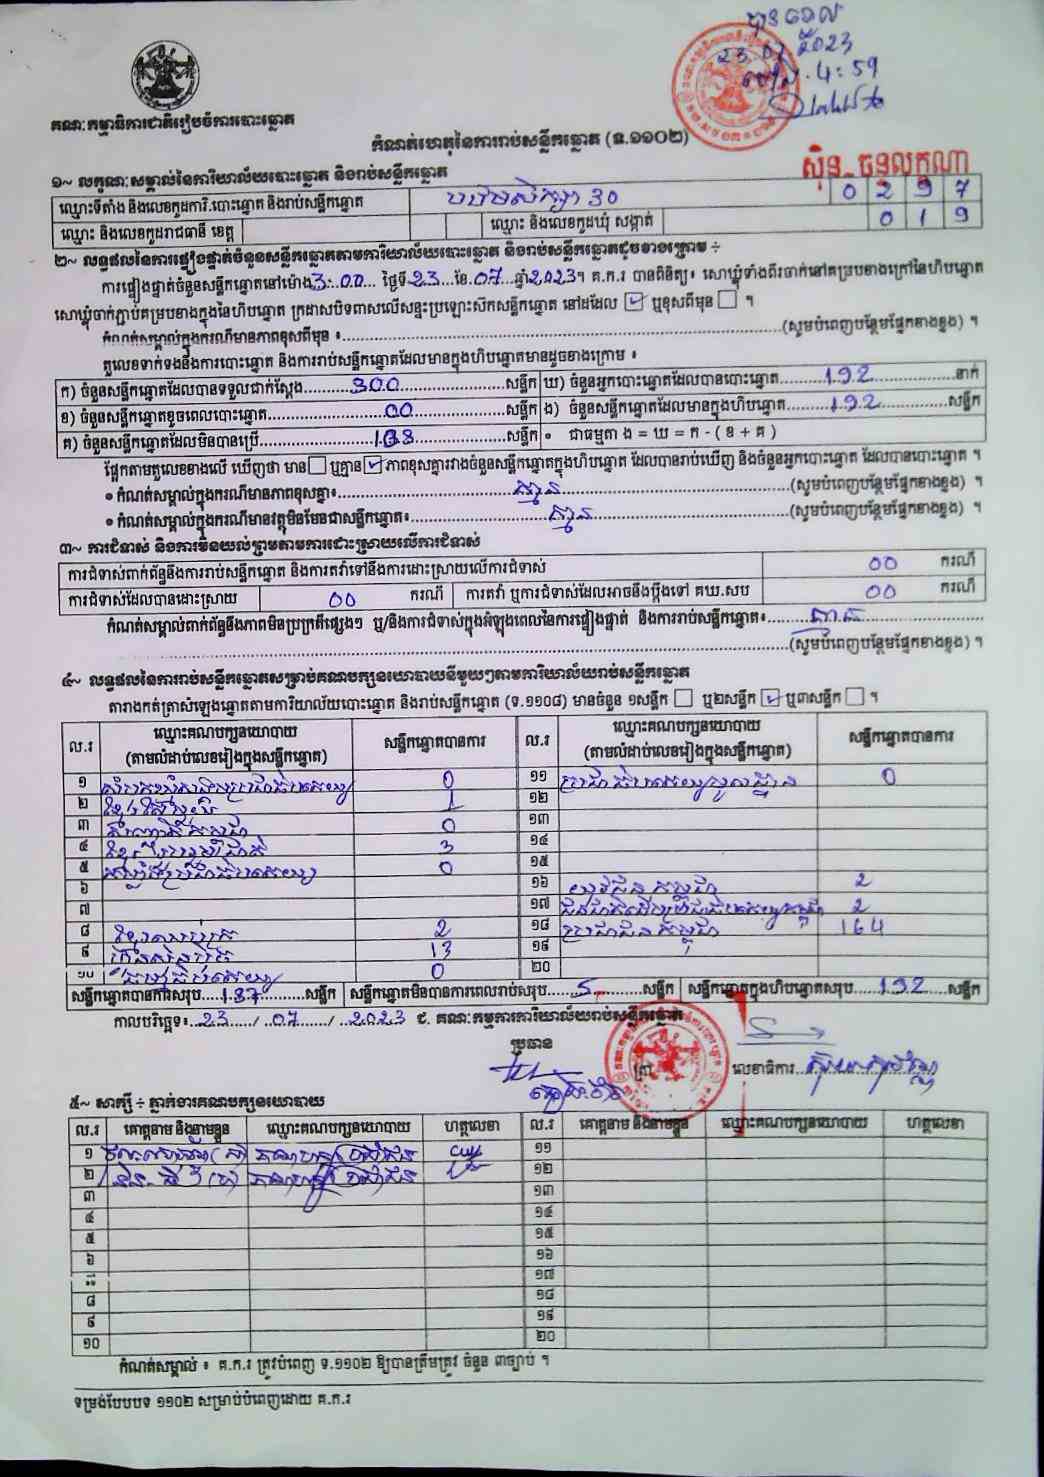 បានទទួល
23 07 2023
ម៉ោង 4:59
គណៈកម្មាធិការជាតិរៀបចំការបោះឆ្នោត
កំណត់ហេតុនៃការរាប់សន្លឹកឆ្នោត (ទ.១១០២)
ស៊ិន ចន្ទលក្ខណា
១~ លក្ខណៈសម្គាល់នៃការិយាល័យបោះឆ្នោត និងរាប់សន្លឹកឆ្នោត
ឈ្មោះទីតាំង និងលេខកូដការិ.បោះឆ្នោត និងរាប់សន្លឹកឆ្នោត បឋមសិក្សា 30 0297
ឈ្មោះ និងលេខកូដរាជធានី ខេត្ត ឈ្មោះ និងលេខកូដឃុំ សង្កាត់ 019
២~ លទ្ធផលនៃការផ្ទៀងផ្ទាត់ចំនួនសន្លឹកឆ្នោតតាមការិយាល័យបោះឆ្នោត និងរាប់សន្លឹកឆ្នោតដូចខាងក្រោម ÷
ការផ្ទៀងផ្ទាត់ចំនួនសន្លឹកឆ្នោតនៅម៉ោង 3:00 ថ្ងៃទី 23 ខែ 07 ឆ្នាំ 2023។ គ.ក.រ បានពិនិត្យ៖ សោឃ្លុំទាំងពីរចាក់នៅគម្របខាងក្រៅនៃហិបឆ្នោត
សោឃ្លុំចាក់ភ្ជាប់គម្របខាងក្នុងនៃហិបឆ្នោត ក្រដាសបិទពាសលើសន្ទះប្រឡោះសឹកសន្លឹកឆ្នោត នៅដដែល ☑ ឬខុសពីមុន ☐ ។
កំណត់សម្គាល់ក្នុងករណីមានភាពខុសពីមុន ៖ (សូមបំពេញបន្ថែមផ្នែកខាងខ្នង) ។
តួលេខទាក់ទងនឹងការបោះឆ្នោត និងការរាប់សន្លឹកឆ្នោតដែលមានក្នុងហិបឆ្នោតមានដូចខាងក្រោម ៖
ក) ចំនួនសន្លឹកឆ្នោតដែលបានទទួលជាក់ស្តែង 300 សន្លឹក ឃ) ចំនួនអ្នកបោះឆ្នោតដែលបានបោះឆ្នោត 192 នាក់
ខ) ចំនួនសន្លឹកឆ្នោតខូចពេលបោះឆ្នោត 00 សន្លឹក ង) ចំនួនសន្លឹកឆ្នោតដែលមានក្នុងហិបឆ្នោត 192 សន្លឹក
គ) ចំនួនសន្លឹកឆ្នោតដែលមិនបានប្រើ 108 សន្លឹក ● ជាធម្មតា ង = ឃ = ក - ( ខ + គ )
ផ្អែកតាមតួលេខខាងលើ ឃើញថា មាន ☐ ឬគ្មាន ☑ ភាពខុសគ្នារវាងចំនួនសន្លឹកឆ្នោតក្នុងហិបឆ្នោត ដែលបានរាប់ឃើញ និងចំនួនអ្នកបោះឆ្នោត ដែលបានបោះឆ្នោត ។
● កំណត់សម្គាល់ក្នុងករណីមានភាពខុសគ្នា៖ គ្មាន (សូមបំពេញបន្ថែមផ្នែកខាងខ្នង) ។
● កំណត់សម្គាល់ក្នុងករណីមានវត្ថុមិនមែនជាសន្លឹកឆ្នោត៖ គ្មាន (សូមបំពេញបន្ថែមផ្នែកខាងខ្នង) ។
៣~ ការជំទាស់ និងការមិនយល់ព្រមតាមការដោះស្រាយលើការជំទាស់
ការជំទាស់ពាក់ព័ន្ធនឹងការរាប់សន្លឹកឆ្នោត និងការតវ៉ាទៅនឹងការដោះស្រាយលើការជំទាស់ 00 ករណី
ការជំទាស់ដែលបានដោះស្រាយ 00 ករណី ការតវ៉ា ឬការជំទាស់ដែលអាចនឹងប្តឹងទៅ គឃ.សប 00 ករណី
កំណត់សម្គាល់ពាក់ព័ន្ធនឹងភាពមិនប្រក្រតីផ្សេងៗ ឬ/និងការជំទាស់ក្នុងអំឡុងពេលនៃការផ្ទៀងផ្ទាត់ និងការរាប់សន្លឹកឆ្នោត៖ គ្មាន
(សូមបំពេញបន្ថែមផ្នែកខាងខ្នង) ។
៤~ លទ្ធផលនៃការរាប់សន្លឹកឆ្នោតសម្រាប់គណបក្សនយោបាយនីមួយៗតាមការិយាល័យរាប់សន្លឹកឆ្នោត
តារាងកត់ត្រាសំឡេងឆ្នោតតាមការិយាល័យបោះឆ្នោត និងរាប់សន្លឹកឆ្នោត (ទ.១១០៨) មានចំនួន ១សន្លឹក ☐ ឬ២សន្លឹក ☑ ឬ៣សន្លឹក ☐ ។
ល.រ ឈ្មោះគណបក្សនយោបាយ (តាមលំដាប់លេខរៀងក្នុងសន្លឹកឆ្នោត) សន្លឹកឆ្នោតបានការ ល.រ ឈ្មោះគណបក្សនយោបាយ (តាមលំដាប់លេខរៀងក្នុងសន្លឹកឆ្នោត) សន្លឹកឆ្នោតបានការ
១ 0 ១១ ប្រជាធិបតេយ្យមូលដ្ឋាន 0
២ 1 ១២
៣ 0 ១៣
៤ ខ្មែររួបរួមជាតិ 3 ១៤
៥ 0 ១៥
៦ ១៦ យុវជនកម្ពុជា 2
៧ ១៧ 2
៨ 2 ១៨ ប្រជាជនកម្ពុជា 164
៩ 13 ១៩
១០ 0 ២០
សន្លឹកឆ្នោតបានការសរុប 187 សន្លឹក សន្លឹកឆ្នោតមិនបានការពេលរាប់សរុប 5 សន្លឹក សន្លឹកឆ្នោតក្នុងហិបឆ្នោតសរុប 192 សន្លឹក
កាលបរិច្ឆេទ៖ 23 / 07 / 2023 ជ. គណៈកម្មការការិយាល័យរាប់សន្លឹកឆ្នោត
ប្រធាន
លេខាធិការ
៥~ សាក្សី ÷ ភ្នាក់ងារគណបក្សនយោបាយ
ល.រ គោត្តនាម និងនាមខ្លួន ឈ្មោះគណបក្សនយោបាយ ហត្ថលេខា ល.រ គោត្តនាម និងនាមខ្លួន ឈ្មោះគណបក្សនយោបាយ ហត្ថលេខា
១ គណបក្សប្រជាជន ១១
២ គណបក្សប្រជាជន ១២
៣ ១៣
៤ ១៤
៥ ១៥
៦ ១៦
៧ ១៧
៨ ១៨
៩ ១៩
១០ ២០
កំណត់សម្គាល់ ៖ គ.ក.រ ត្រូវបំពេញ ទ.១១០២ ឱ្យបានត្រឹមត្រូវ ចំនួន ៣ច្បាប់ ។
ទម្រង់បែបបទ ១១០២ សម្រាប់បំពេញដោយ គ.ក.រ